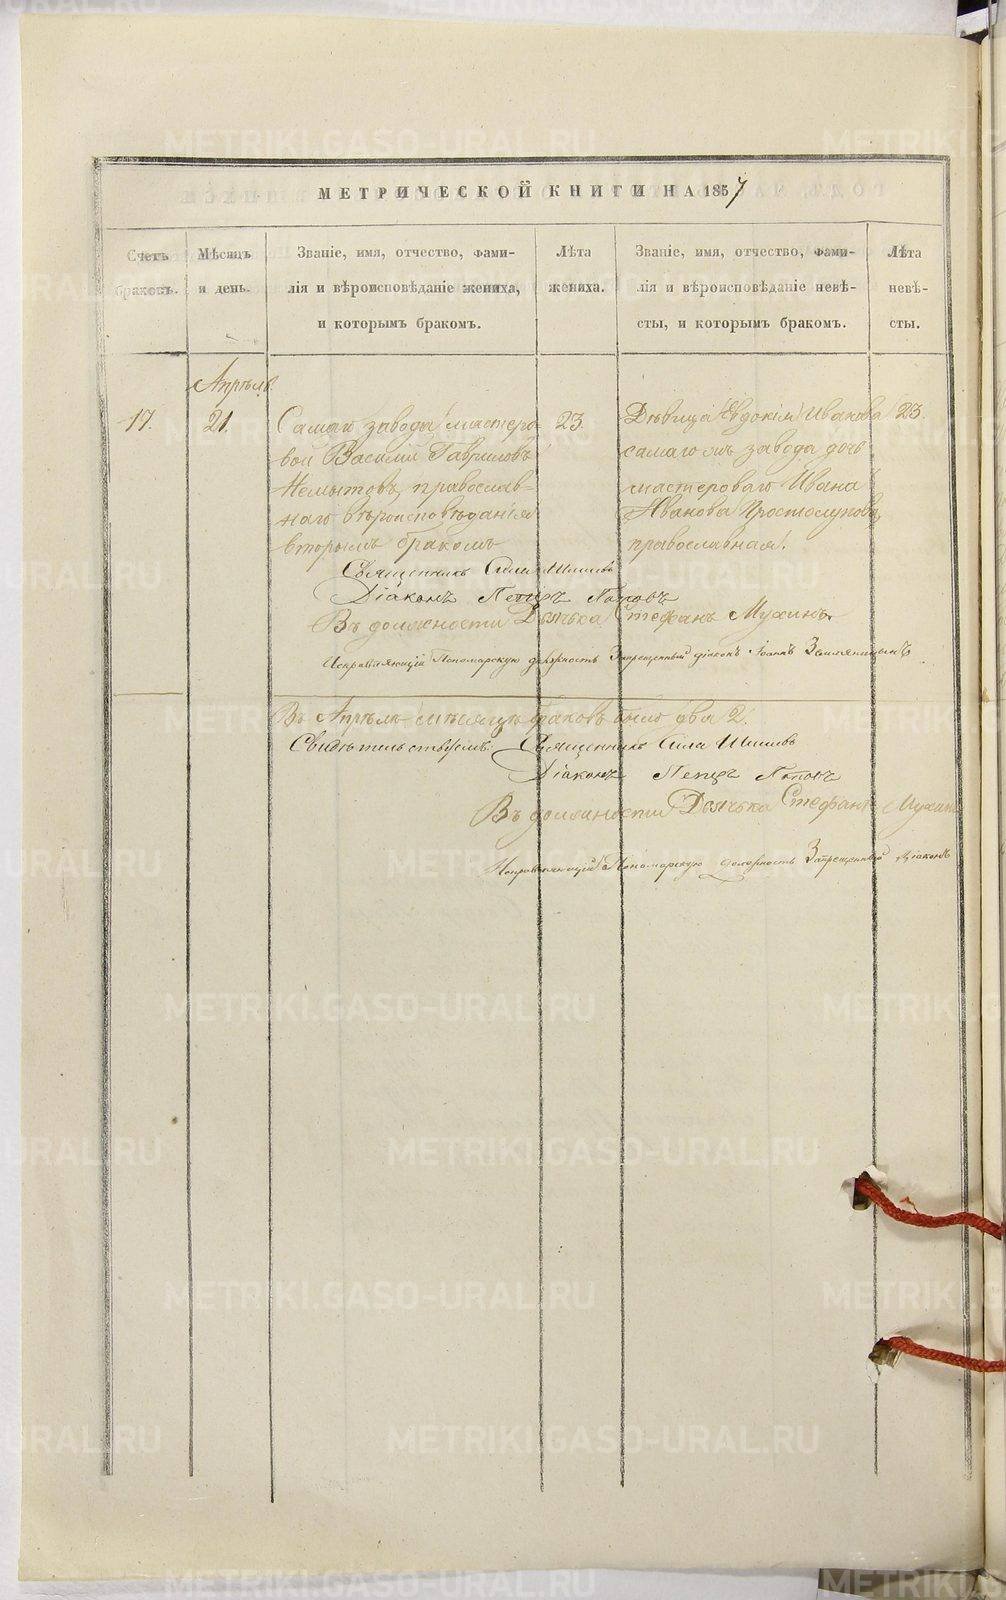 МЕТРИЧЕСКОЙ КНИГИ НА 1857
Счетъ браковъ.
Мѣсяцъ и день.
Званіе, имя, отчество, фами-
лія и вѣроисповѣданіе жениха,
и которымъ бракомъ.
Лѣта
жениха.
Званіе, имя, отчество, фами-
лія и вѣроисповѣданіе невѣ-
сты, и которымъ бракомъ.
Лѣта
невѣ-
сты.
Апрѣль
17.
21.
Самаго завода мастеро-
вой Василій Гавриловъ
Немытовъ, православ-
наго вѣроисповѣданія
вторымъ бракомъ
23.
Дѣвица Евдокія Иванова
самаго жъ завода дочь
мастероваго Ивана
Иванова Простолупова,
православная.
23
Священникъ Сила Шишевъ
Діаконъ Петръ Поповъ
Въ должности Дьячька Стефанъ Мухинъ.
Исправляющій Пономарскую должность Запрещенный діаконъ Іоаннъ Земляницынъ
Въ Апрѣлѣ мѣсяцѣ браковъ было два 2.
Свидѣтельствуемъ: Священникъ Сила Шишевъ
Діаконъ Петръ Поповъ
Въ должности Дьячька Стефанъ Мухинъ
Исправляющій Пономарскую должность Запрещенный Діаконъ
METRIKI.GASO-URAL.RU